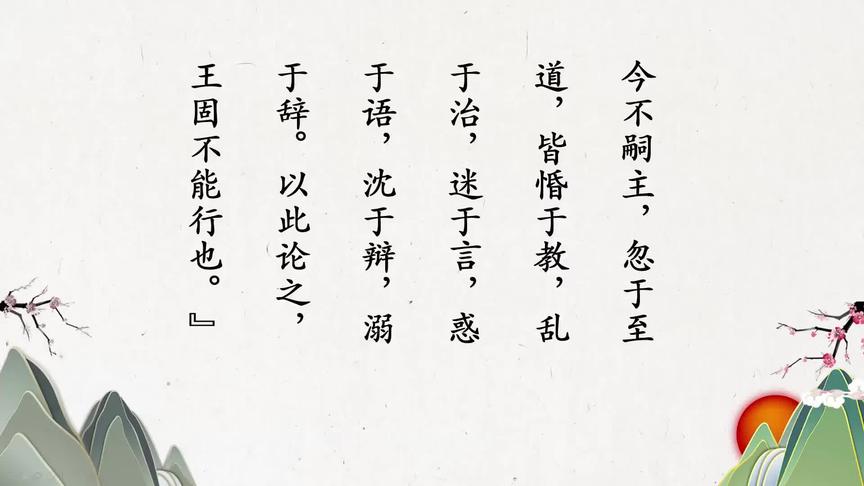 今不嗣主，忽于至
道，皆惛于教，乱
于治，迷于言，惑
于语，沈于辩，溺
于辞。以此论之，
王固不能行也。』